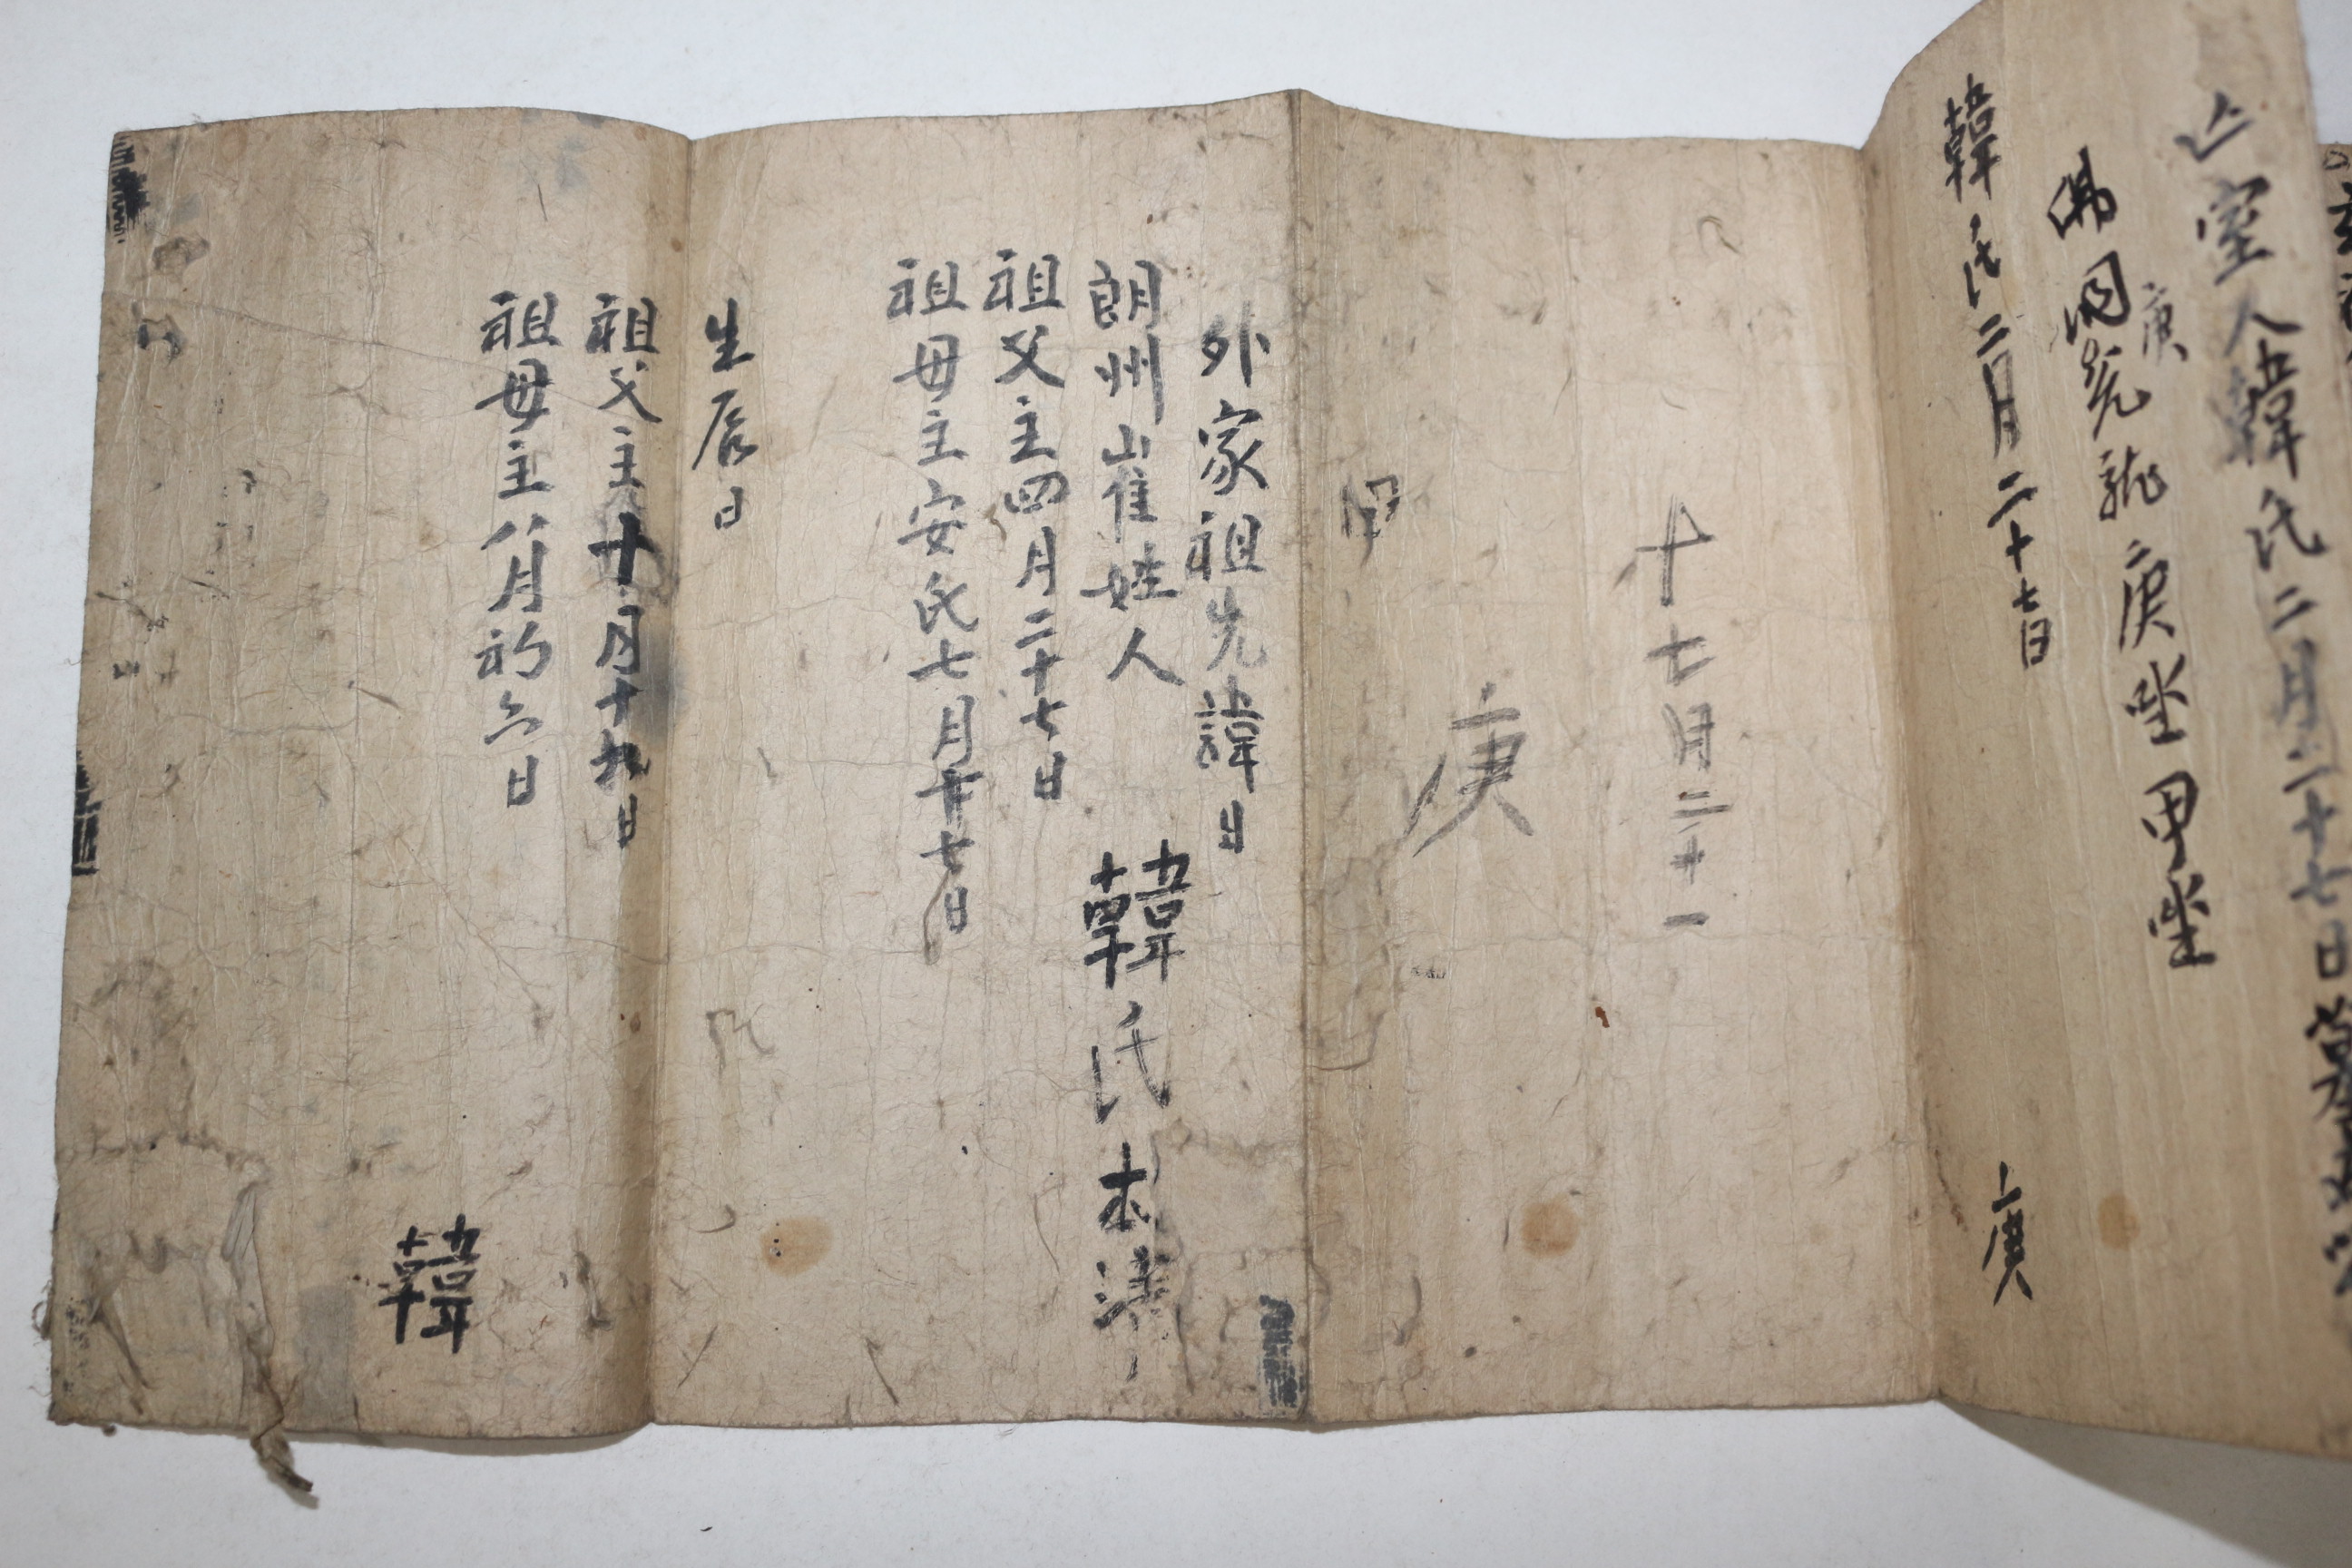 亡室人韓氏二月二十七日
庚
庚坐甲坐
韓氏二月二十七日
庚
十七月二十一
庚
外家祖先諱日
朗州崔姓人
韓氏本淸
祖父主四月二十七日
祖母主安氏七月廿七日
生辰日
祖父主十月十九日
祖母主八月初六日
韓